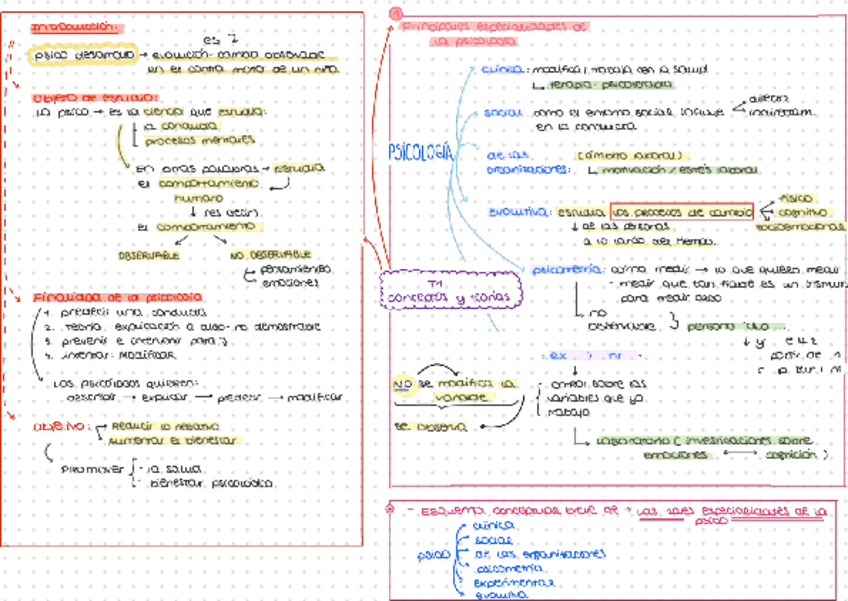 Introducción:
es
psico desarrollo → evolución - cambio observable
en el
de un niño
Objeto de estudio:
la psico → es la ciencia que estudia:
la conducta
procesos mentales
En otras palabras → estudia
el comportamiento
humano
↓ (es decir)
el comportamiento
OBSERVABLE NO OBSERVABLE
pensamientos
emociones
Finalidad de la psicología
1. predecir una conducta
2. teoría: explicación a algo - no demostrable
3. prevenir e intervenir para
4. intentar modificar
Los psicólogos quieren:
describir → explicar → predecir → modificar
Objetivo: Reducir lo negativo
Aumentar el bienestar
Promover - la salud
- bienestar psicológico
Principales especialidades de
la psicología
PSICOLOGÍA
clínica: modifica, trabaja con la salud
terapia - psicoterapia
social: como el entorno social influye
en la conducta
directa
indirectam.
de las organizaciones: (ámbito laboral)
motivación / estrés laboral
evolutiva: estudia los procesos de cambio
↓ de las personas
a lo largo del tiempo.
físico
cognitivo
socioemocional
T1
conceptos y teorías
psicometría: cómo medir → lo que quiero medir
- medir que tan fiable es un
para medir algo
no
observable
ex
NO se modifica la
variable
se observa
control sobre las
variables que yo
trabajo
laboratorio (investigaciones sobre
emociones ↔ cognición)
- Esquema conceptual breve de → las especialidades de la
psico
psico
clínica
social
de las organizaciones
psicometría
experimental
evolutiva